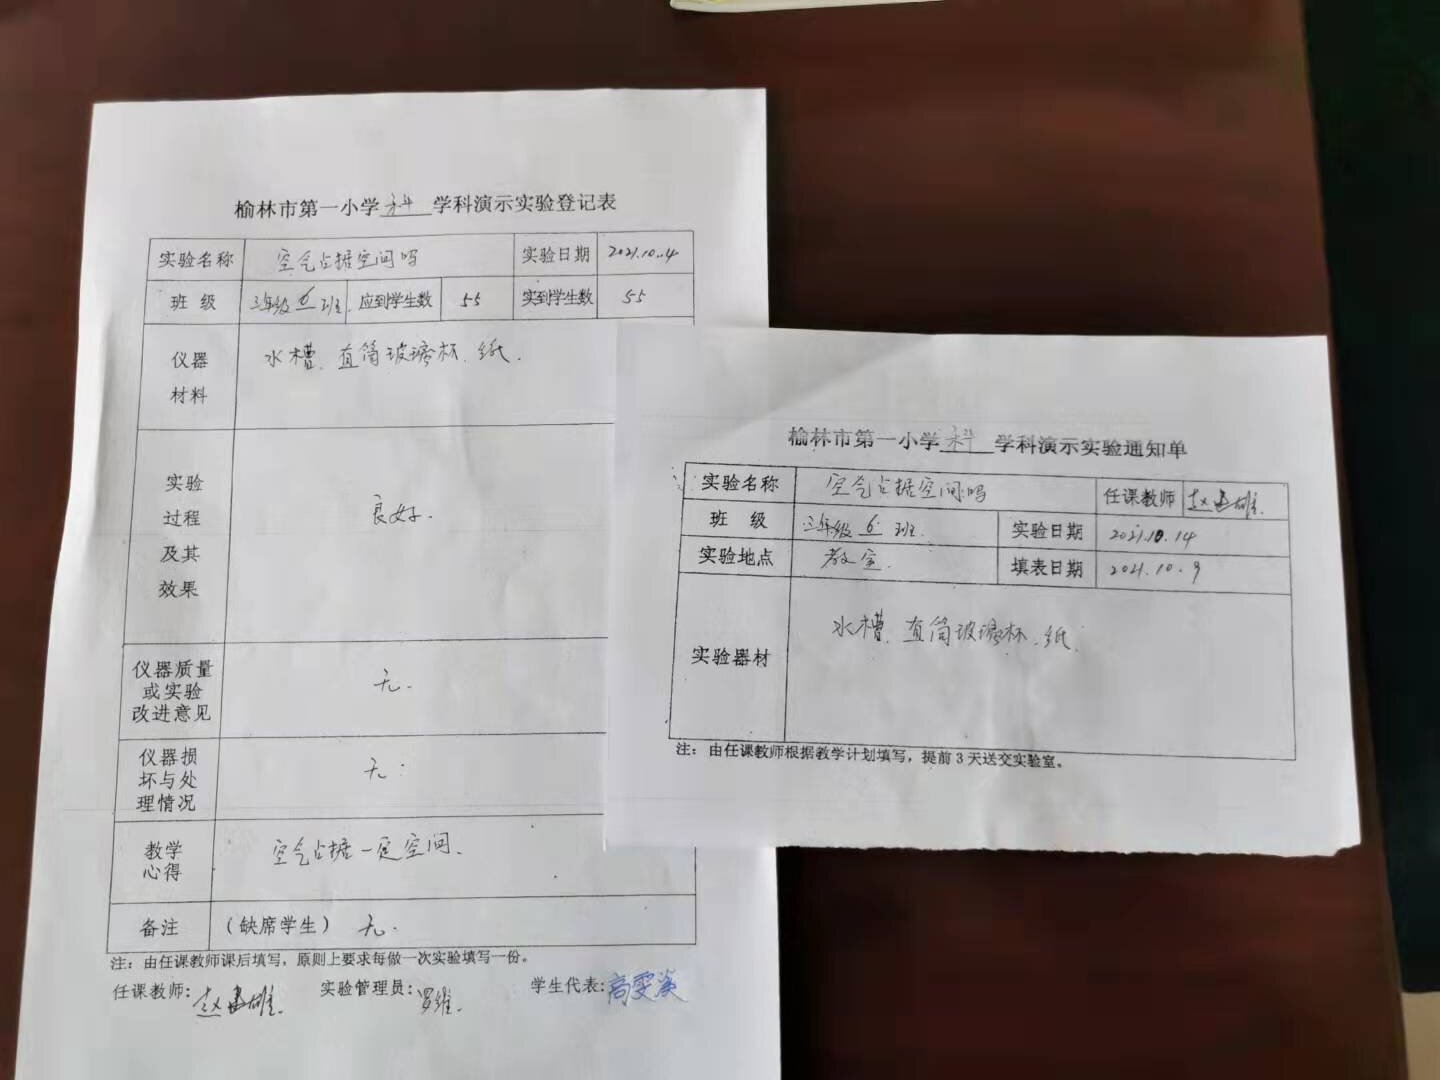 榆林市第一小学 科 学科演示实验登记表
实验名称 空气占据空间吗 实验日期 2021.10.14
班 级 三年级 6 班 应到学生数 55 实到学生数 55
仪器
材料
水槽、直筒玻璃杯、纸.
实验
过程
及其
效果
良好.
仪器质量
或实验
改进意见
无.
仪器损
坏与处
理情况
无.
教学
心得
空气占据一定空间.
备注 (缺席学生) 无.
注：由任课教师课后填写，原则上要求每做一次实验填写一份。
任课教师: 赵 雄. 实验管理员: 罗维. 学生代表: 高雯
榆林市第一小学 科 学科演示实验通知单
实验名称 空气占据空间吗 任课教师 赵 雄.
班 级 三年级 6 班 实验日期 2021.10.14
实验地点 教室. 填表日期 2021.10.9
实验器材 水槽、直筒玻璃杯、纸.
注：由任课教师根据教学计划填写，提前3天送交实验室。